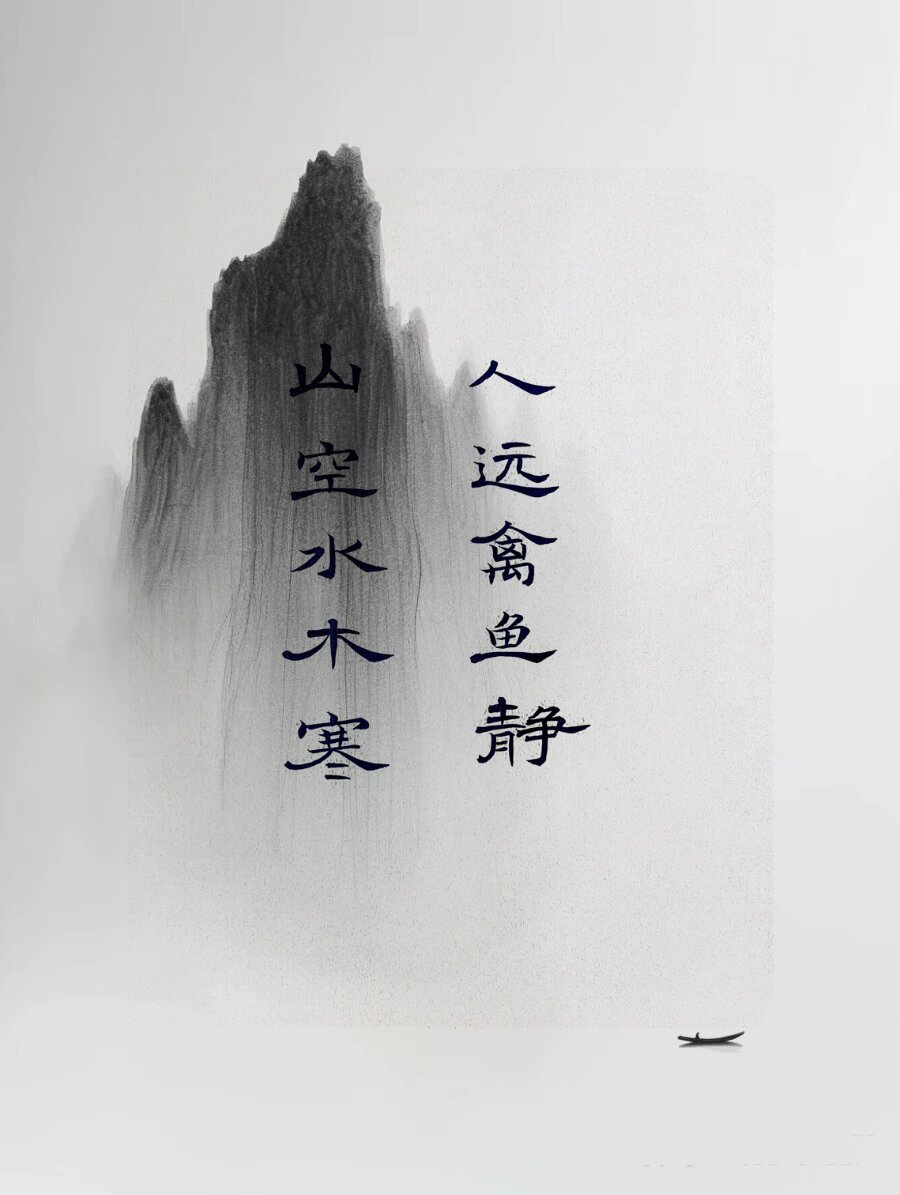 人远禽鱼静
山空水木寒